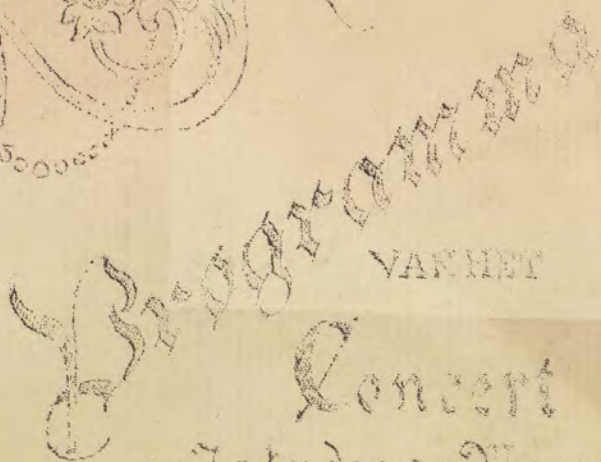 Programma
VAN HET
Concert